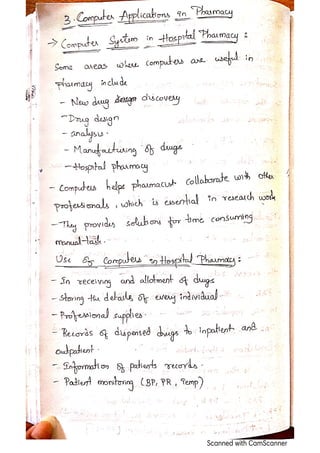 3. Computer Applications in Pharmacy
→ Computer System in Hospital Pharmacy :
Some areas where computers are useful in
pharmacy include
- New drug design discovery
- Drug design
- analysis .
- Manufacturing of drugs
- Hospital pharmacy
- Computers helps pharmacist collaborate with other
professionals , which is essential in research work
- They provides solutions for time consuming
manual task .
Use of Computers in Hospital Pharmacy :
- In receiving and allotment of drugs
- Storing the details of every individual
- Professional supplies .
- Records of dispensed drugs to inpatient and
outpatient .
- Information of patients records .
- Patient monitoring (BP, PR , Temp)
Scanned with CamScanner